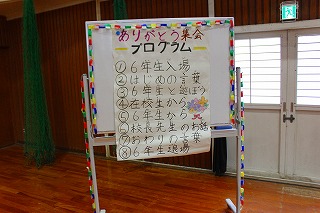 ありがとう集会
プログラム
①6年生入場
②はじめの言葉
③6年生と遊ぼう
④在校生から
⑤6年生から
⑥校長先生のお話
⑦おわりの言葉
⑧6年生退場